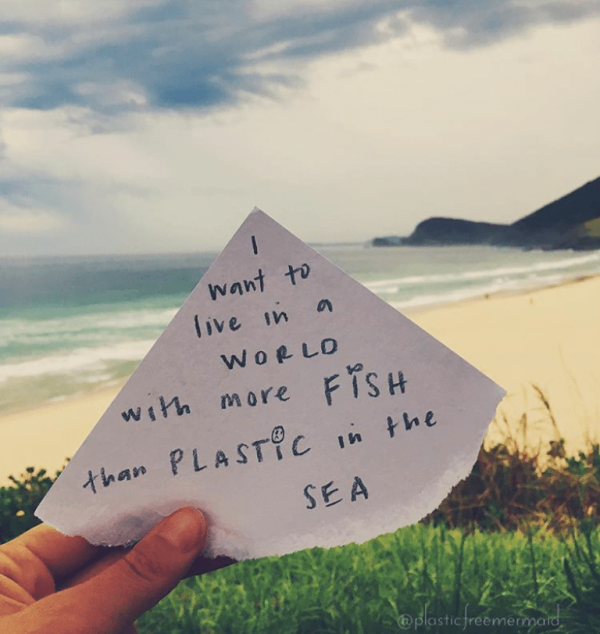 I
want to
live in a
WORLD
with more FISH
than PLASTIC in the
SEA
@plasticfreemermaid